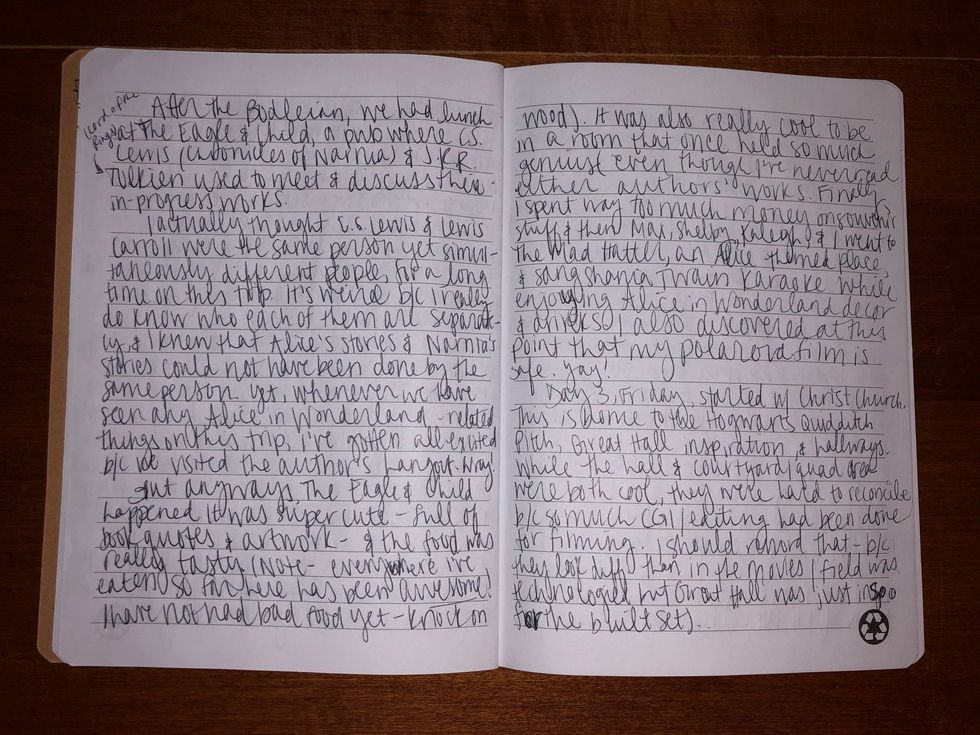 (Lord of the
Rings)
After the Bodleian, we had lunch
at the Eagle & Child, a pub where C.S.
Lewis (Chronicles of Narnia) & J.R.R.
Tolkien used to meet & discuss their
in-progress works.
I actually thought C.S. Lewis & Lewis
Carroll were the same person yet simul-
taneously different people, for a long
time on this trip. It's weird b/c I really
do know who each of them are separate-
ly, & I knew that Alice's stories & Narnia's
stories could not have been done by the
same person. Yet, whenever we have
seen any Alice in Wonderland-related
things on this trip, I've gotten all excited
b/c we visited the author's hangout. Wrong!
But anyways, The Eagle & Child
happened. It was super cute - full of
book quotes & artwork - & the food was
really tasty (Note - everywhere I've
eaten so far here has been awesome!
I have not had bad food yet - knock on
wood). It was also really cool to be
in a room that once held so much
genius, even though I've never read
either authors' works. Finally,
I spent way too much money on souvenir
stuff & then Max, Shelby, Kaleigh, & I went to
The Mad Hatter, an Alice themed place,
& sang Shania Twain karaoke while
enjoying Alice in Wonderland decor
& drinks! I also discovered at this
point that my polaroid film is
safe. Yay!
Day 3, Friday, started w/ Christ Church.
This is home to the Hogwarts Quidditch
Pitch, Great Hall inspiration, & hallways.
While the hall & courtyard/quad area
were both cool, they were hard to reconcile
b/c so much CGI/editing had been done
for filming. I should reword that - b/c
they look diff. than in the movies (field was
technologied but Great Hall was just inspo
for the built set)..